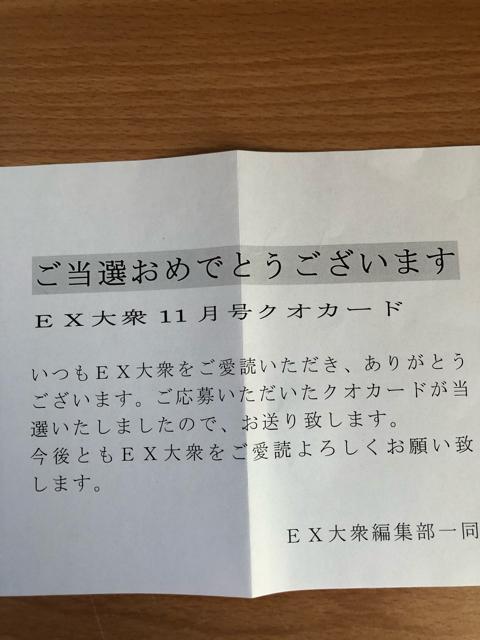 ご当選おめでとうございます
ＥＸ大衆 11 月号クオカード
いつもＥＸ大衆をご愛読いただき、ありがとう
ございます。ご応募いただいたクオカードが当
選いたしましたので、お送り致します。
今後ともＥＸ大衆をご愛読よろしくお願い致
します。
ＥＸ大衆編集部一同